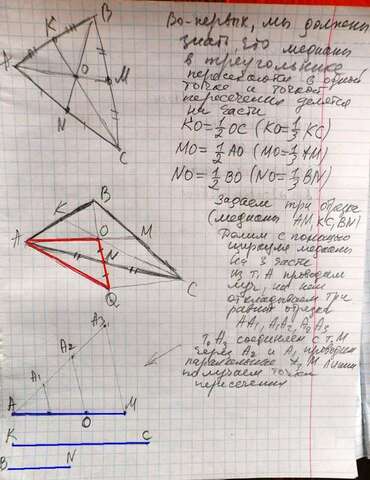 Во-первых, мы должны
знать, что медианы
в треугольнике
пересекаются в одной
точке и точкой
пересечения делятся
на части
KO=1/2 OC (KO=1/3 KC)
MO=1/2 AO (MO=1/3 AM)
NO=1/2 BO (NO=1/3 BN)
Задаем три отрезка
(медианы AM, KC, BN)
Делим с помощью
циркуля медианы
на 3 части
из т. A проводим
луч, на нем
откладываем три
равных отрезка
AA1, A1A2, A2A3
т. A3 соединяем с т. M
через A2 и A1 проводим
параллельные
получаем точки
пересечения
A
K
B
O
M
N
C
B
K
A
O
M
N
C
Q
A3
A2
A1
A
O
M
K
C
B
N